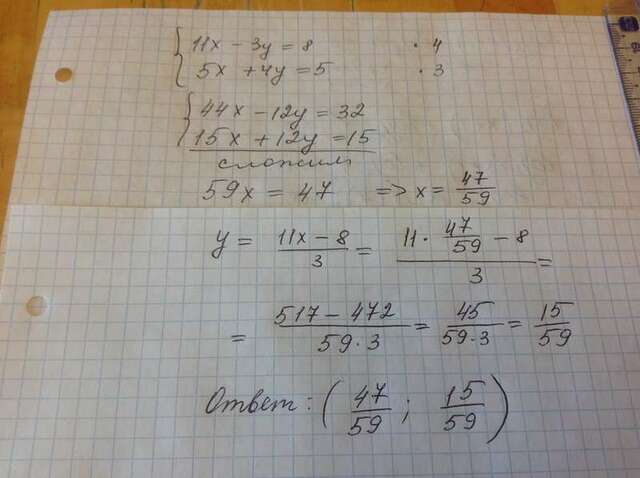 11x - 3y = 8 · 4
5x + 4y = 5 · 3
44x - 12y = 32
15x + 12y = 15
сложим
59x = 47 => x = 47/59
y = (11x - 8)/3 = (11 · 47/59 - 8)/3 =
= (517 - 472)/(59 · 3) = 45/(59 · 3) = 15/59
Ответ: (47/59 ; 15/59)